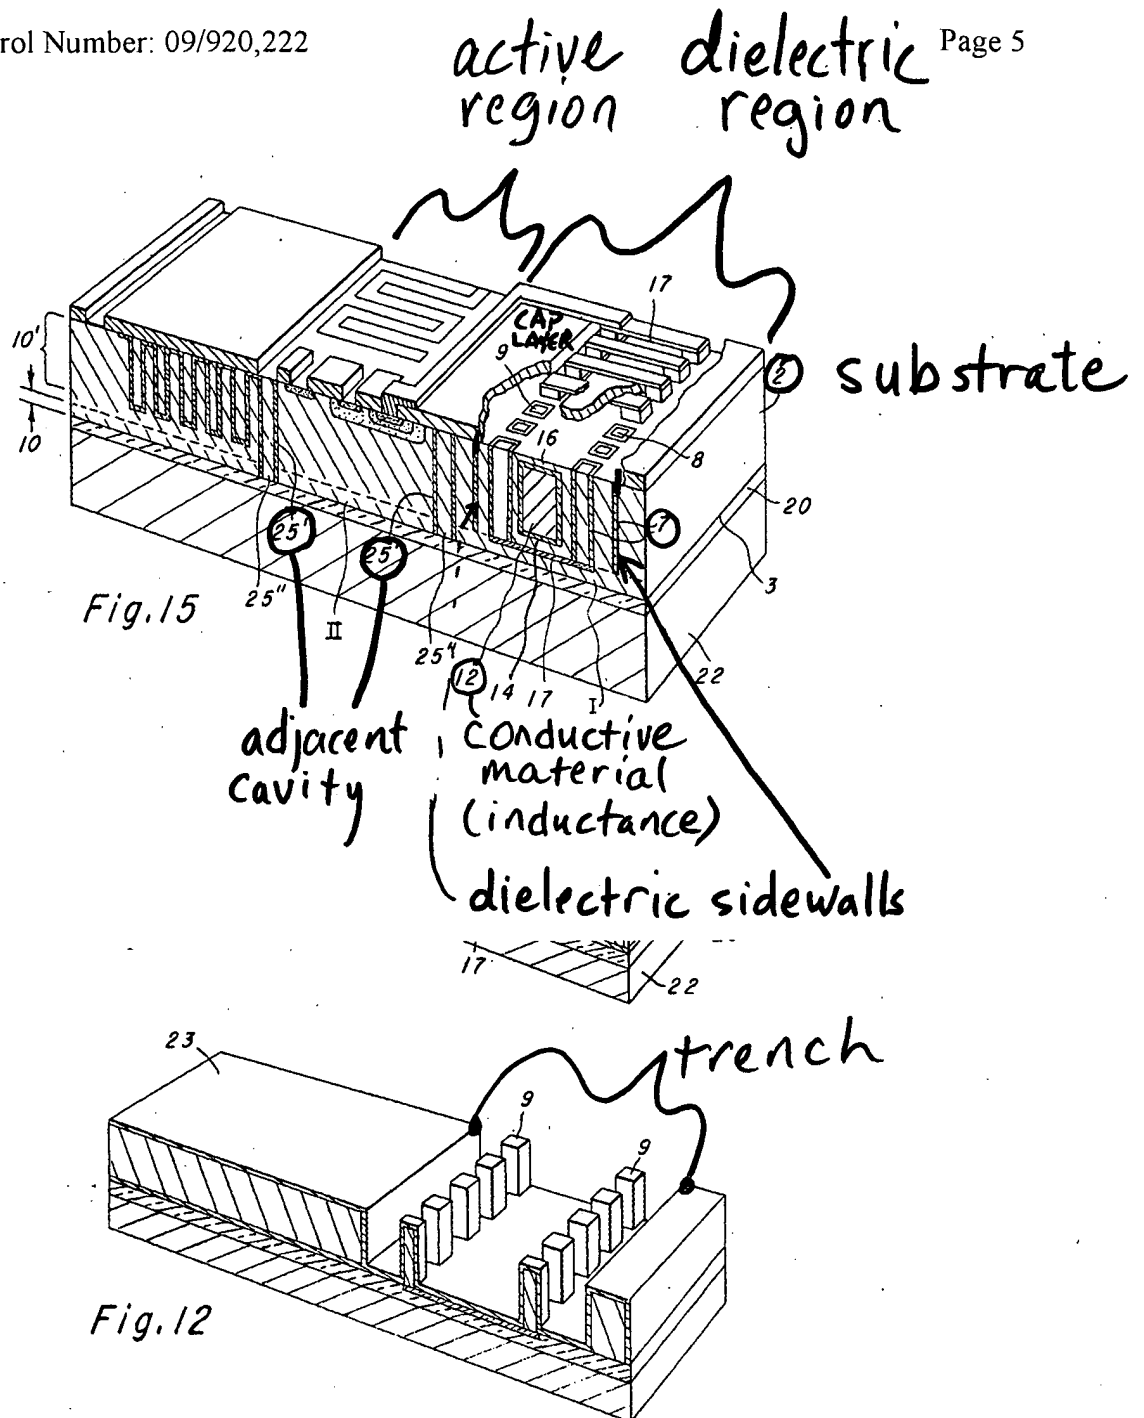 rol Number: 09/920,222
Page 5
active dielectric
region region
17
10'
CAP
LAYER
9
2 substrate
16
8
10
20
7
25' 25'
3
25"
Fig.15
II
25"
12 14 17 I
22
adjacent
cavity
conductive
material
(inductance)
dielectric sidewalls
17
22
23
trench
9
9
Fig.12